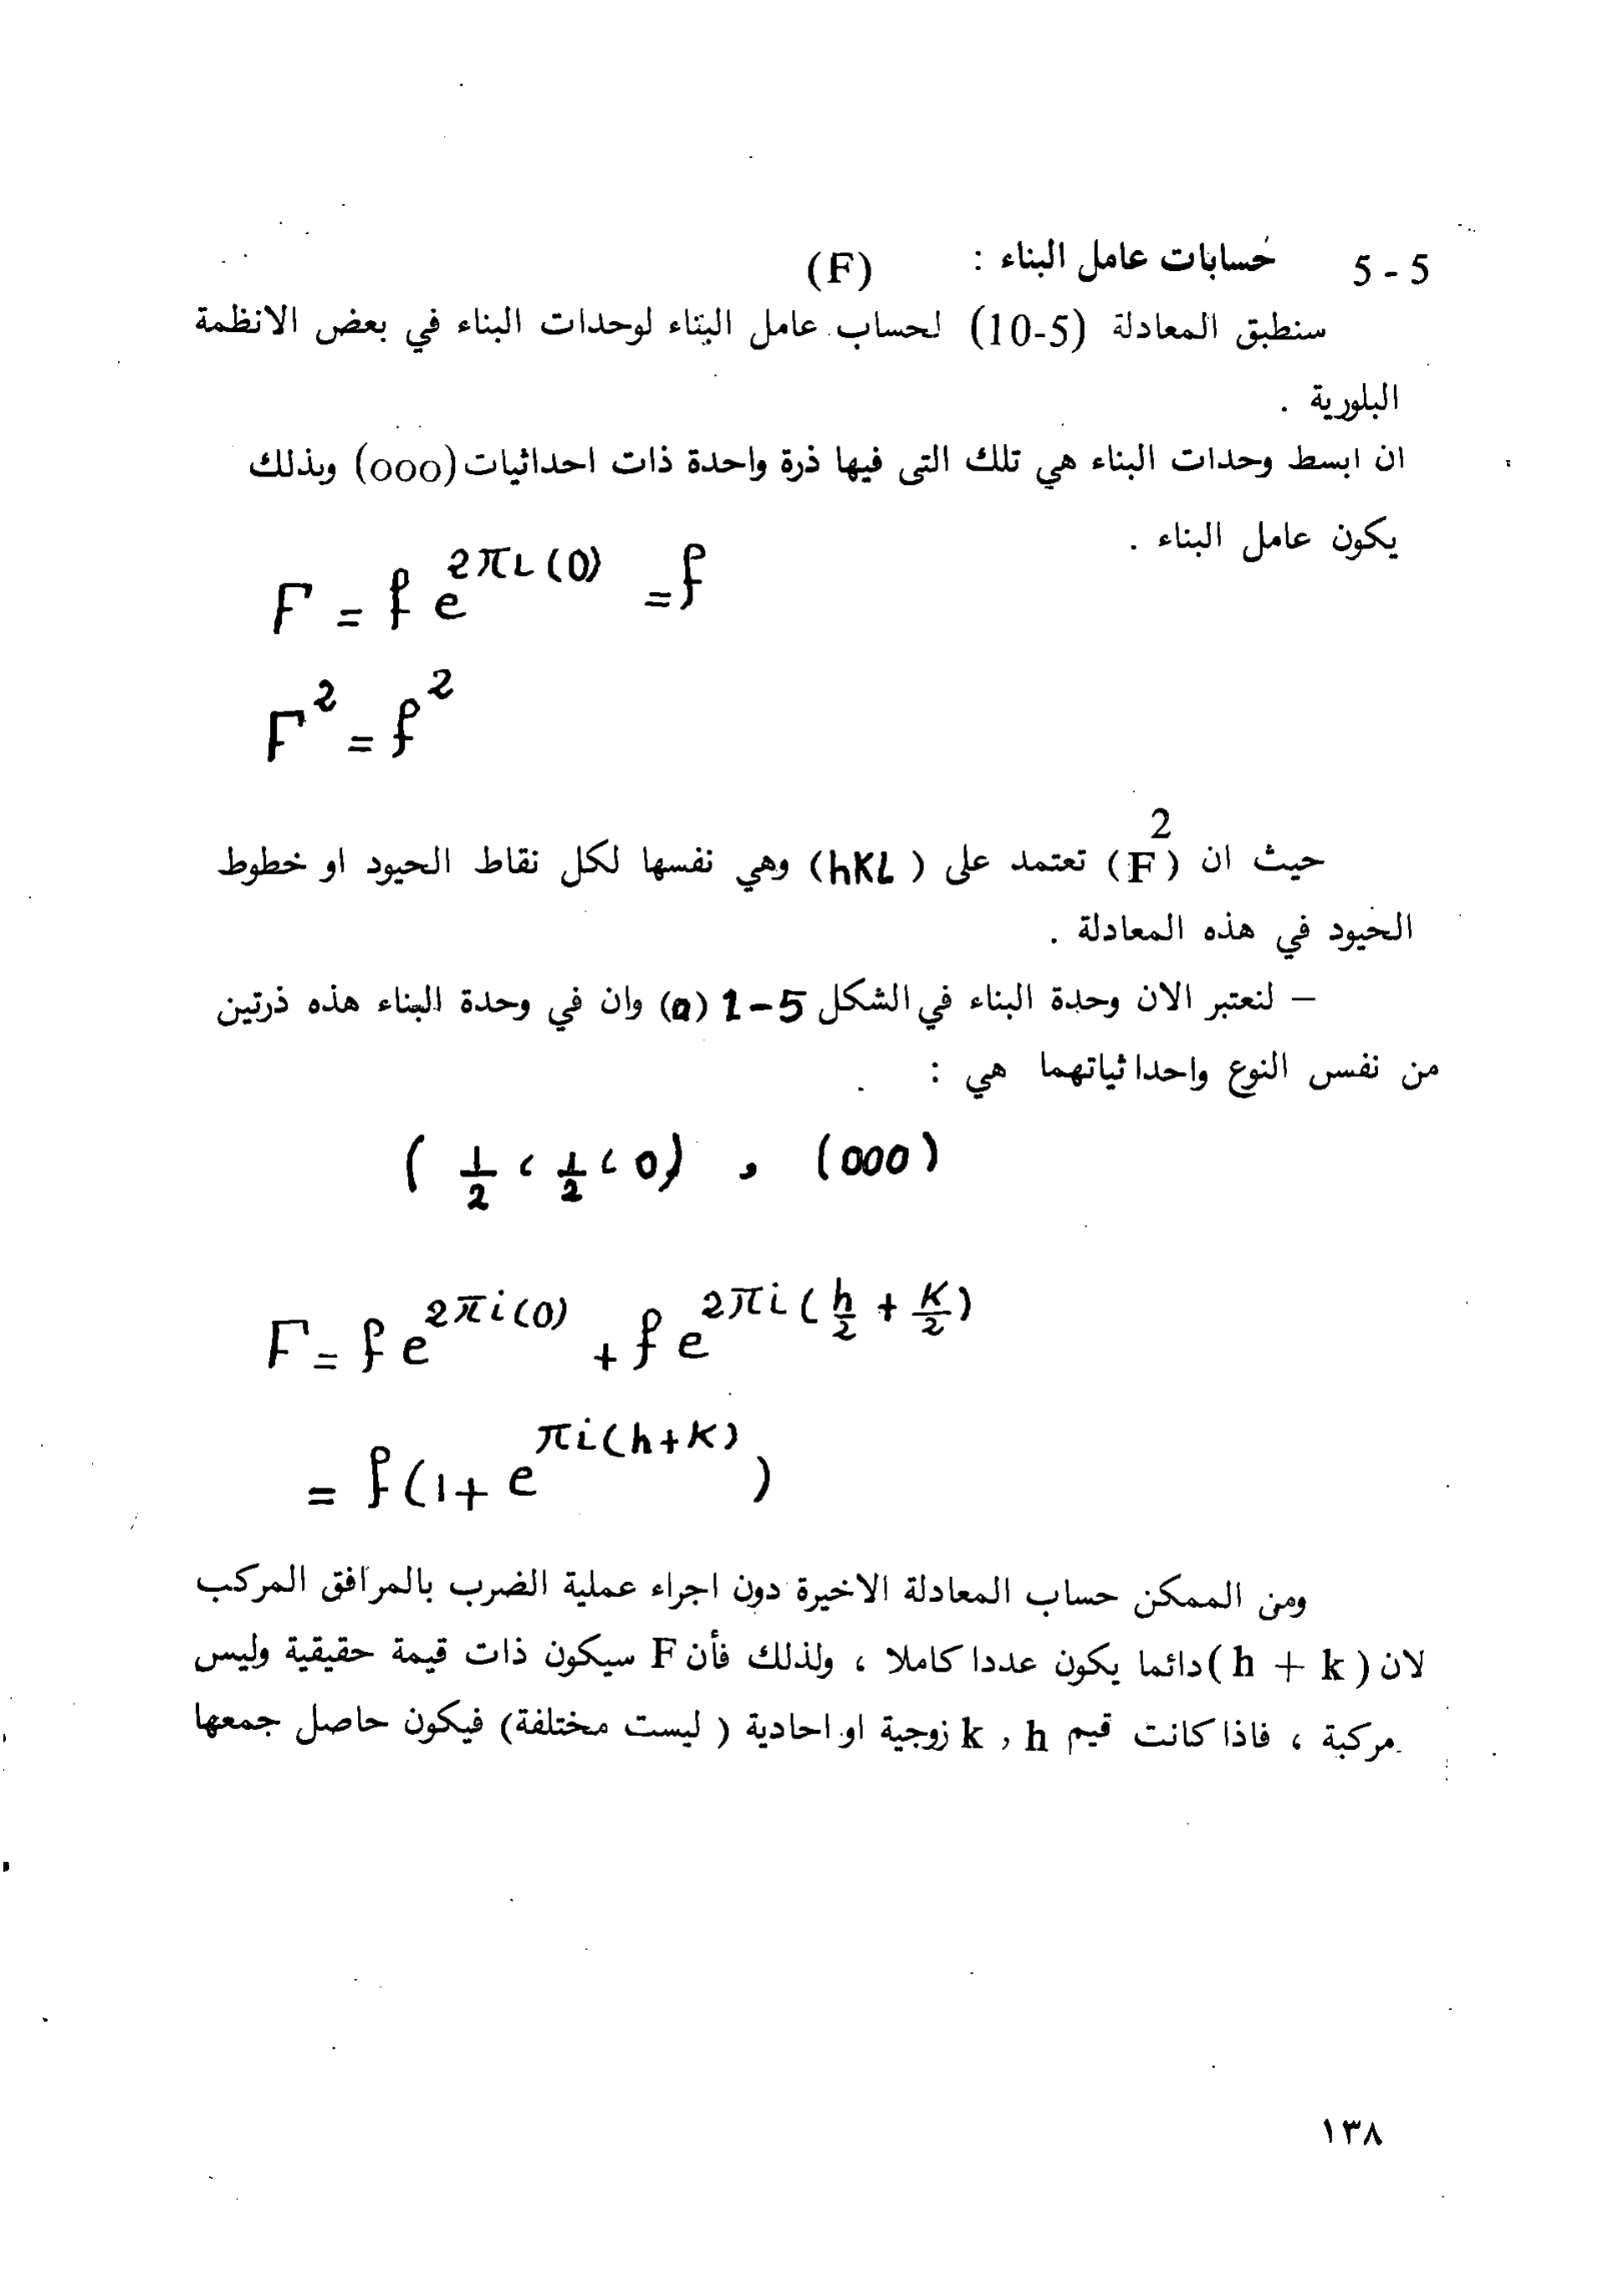 5 - 5 حسابات عامل البناء : (F)
سنطبق المعادلة (5-10) لحساب عامل البناء لوحدات البناء في بعض الانظمة
البلورية .
ان ابسط وحدات البناء هي تلك التى فيها ذرة واحدة ذات احداثيات (000) وبذلك
يكون عامل البناء .
F = f e^{2πi(0)} = f
F² = f²
حيث ان (F²) تعتمد على (hKL) وهي نفسها لكل نقاط الحيود او خطوط
الحيود في هذه المعادلة .
– لنعتبر الان وحدة البناء في الشكل 5-1 (a) وان في وحدة البناء هذه ذرتين
من نفس النوع واحداثياتهما هي :
(000) , (½ ، ½ ، 0)
F = f e^{2πi(0)} + f e^{2πi(h/2 + K/2)}
= f(1+ e^{πi(h+K)})
ومن الممكن حساب المعادلة الاخيرة دون اجراء عملية الضرب بالمرافق المركب
لان (h + k) دائما يكون عددا كاملا ، ولذلك فأن F سيكون ذات قيمة حقيقية وليس
مركبة ، فاذا كانت قيم k , h زوجية او احادية ( ليست مختلفة) فيكون حاصل جمعها
١٣٨